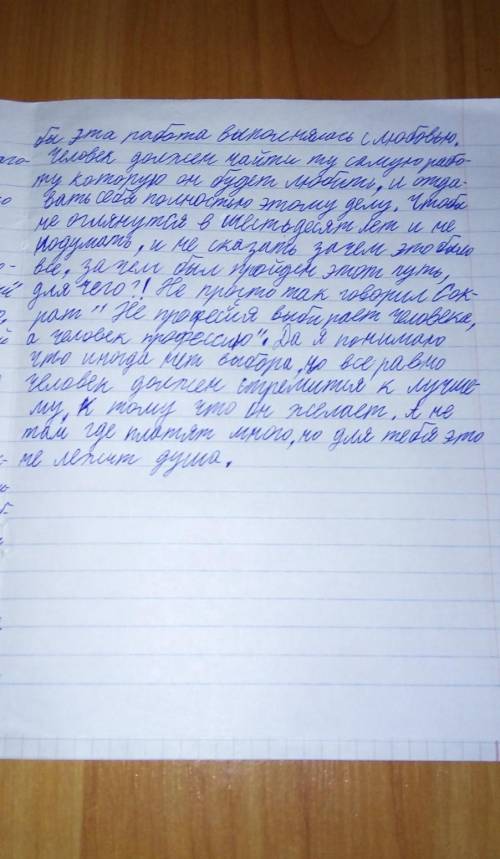 бы эта работа выполнялась с любовью.
Человек должен найти ту самую рабо-
ту которую он будет любить, и отда-
вать себя полностью этому делу. Чтобы
не оглянутся в шестьдесят лет и не
подумать, и не сказать зачем это было
все, зачем был пройден этот путь,
для чего?! Не просто так говорил Сок-
рат " Не професия выбирает человека,
а человек профессию". Да я понимаю
что иногда нет выбора, но все равно
человек должен стремится к лучше-
му, к тому что он желает. А не
там где платят много, но для тебя это
не лежит душа.